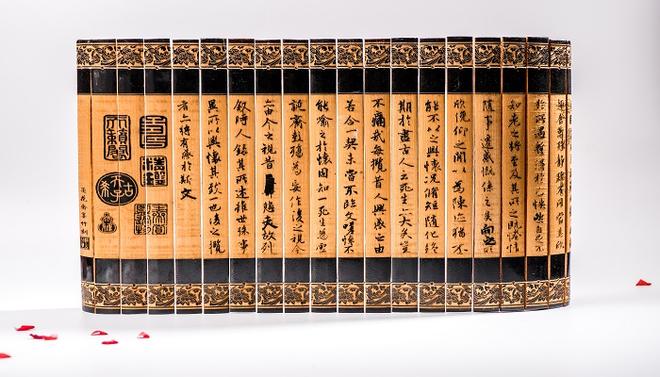 趣舍萬殊靜躁不同當其欣
於所遇蹔得於己怏然自足不
知老之將至及其所之既惓情
隨事遷感慨係之矣向之所
欣俛仰之閒以為陳迹猶不
能不以之興懷況脩短隨化終
期於盡古人云死生亦大矣豈
不痛哉每攬昔人興感之由
若合一契未嘗不臨文嗟悼不
能喻之於懷固知一死生為虛
誕齊彭殤為妄作後之視今
亦由今之視昔悲夫故列
敘時人錄其所述雖世殊事
異所以興懷其致一也後之攬
者亦將有感於斯文
古希天子